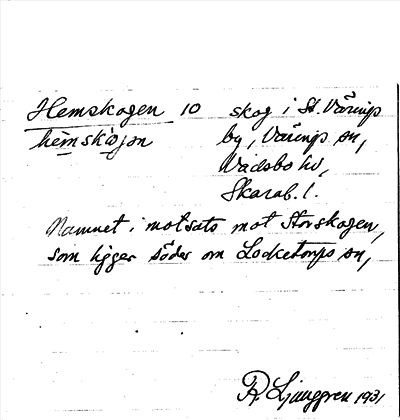 Hemskogen 10 skog i St. Väring
hemskọjọn by, Värings sn,
Vadsbo hd,
Skarab. l.
Namnet i motsats mot Storskogen,
som ligger söder om Locketorps sn,
R. Ljunggren 1931